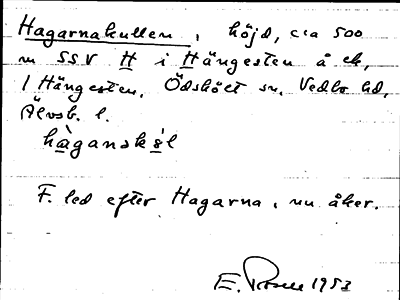 Hagarnakullen, höjd, c:a 500
m SSV H i Hängesten å ek,
1 Hängesten, Ödskölt sn, Vedbo hd,
Älvsb. l.
hàganskə̀l
F. led efter Hagarna, nu åker.
E. 1953